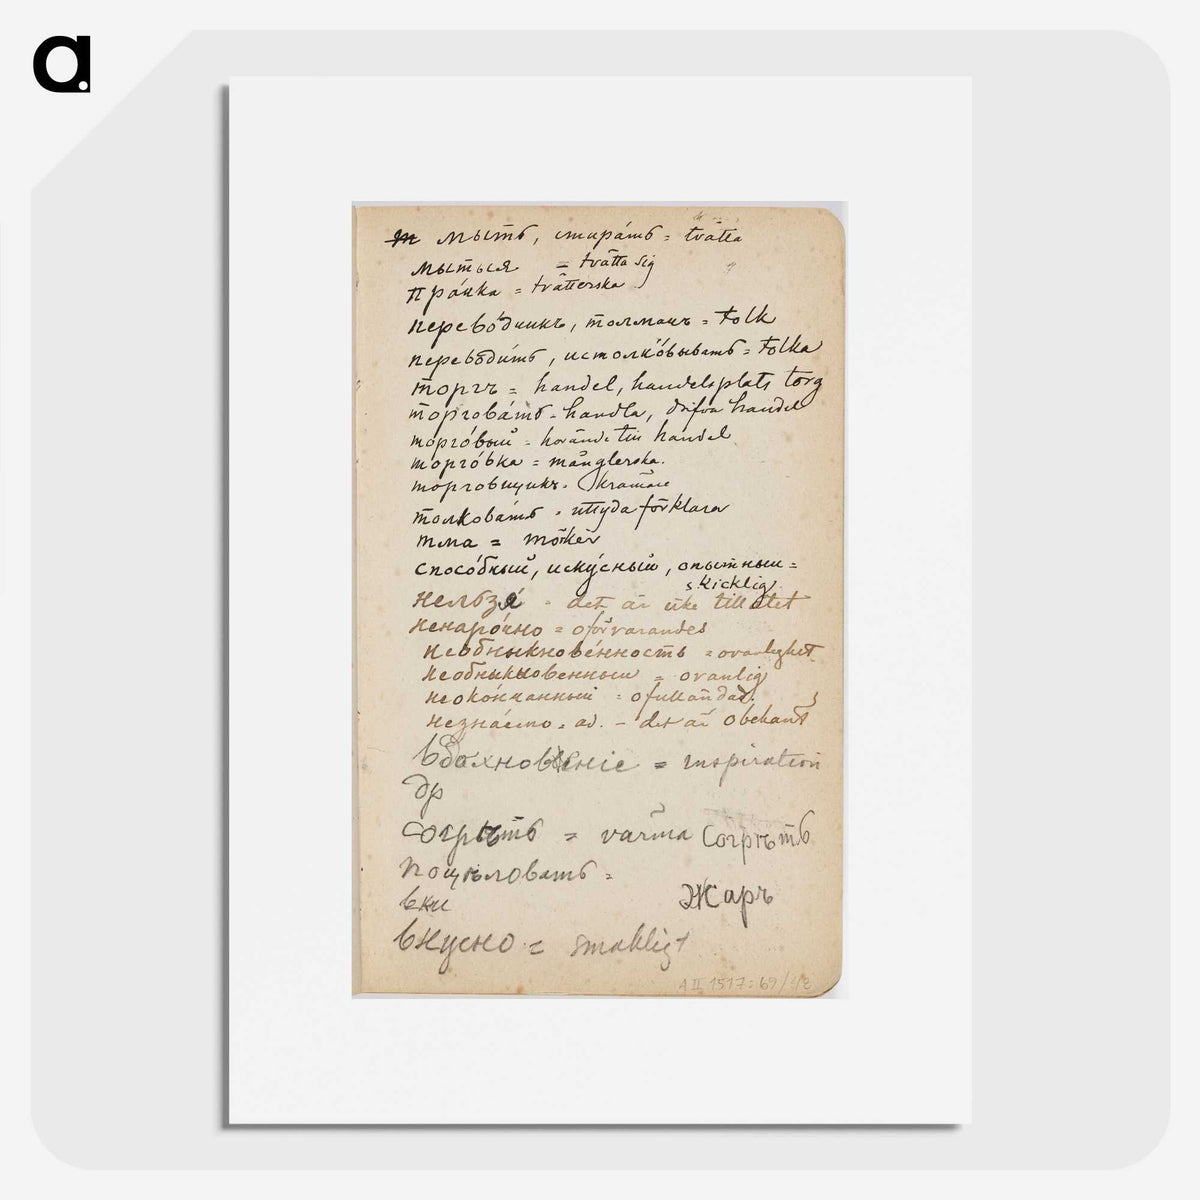 a.
м мыть, стирáть = tvätta
мыться = tvätta sig
Прáчка = tvätterska
перевóдчикъ, толмачъ = tolk
переводи́ть, истолкóвывать = tolka
торгъ = handel, handelsplats torg
торговáть = handla, drifva handel
торгóвый = hörande till handel
торгóвка = månglerska.
торговщикъ = krämare
толковáть = uttyda förklara
тма = mörker
спосóбный, искýсный, опытный =
skicklig
нельзя́ = det är icke tillåtet
ненарóчно = oförvarandes
необыкновéнность = ovanlighet
необыкновенный = ovanlig
неокóнчанный = ofulländad.
незнáемо = ad. – det är obekant
вдохновеніе = inspiration
др
Согрѣть = värma Согрѣть
поцѣловать =
вки Жаръ
вкусно = smakligt
A II 1517:69/